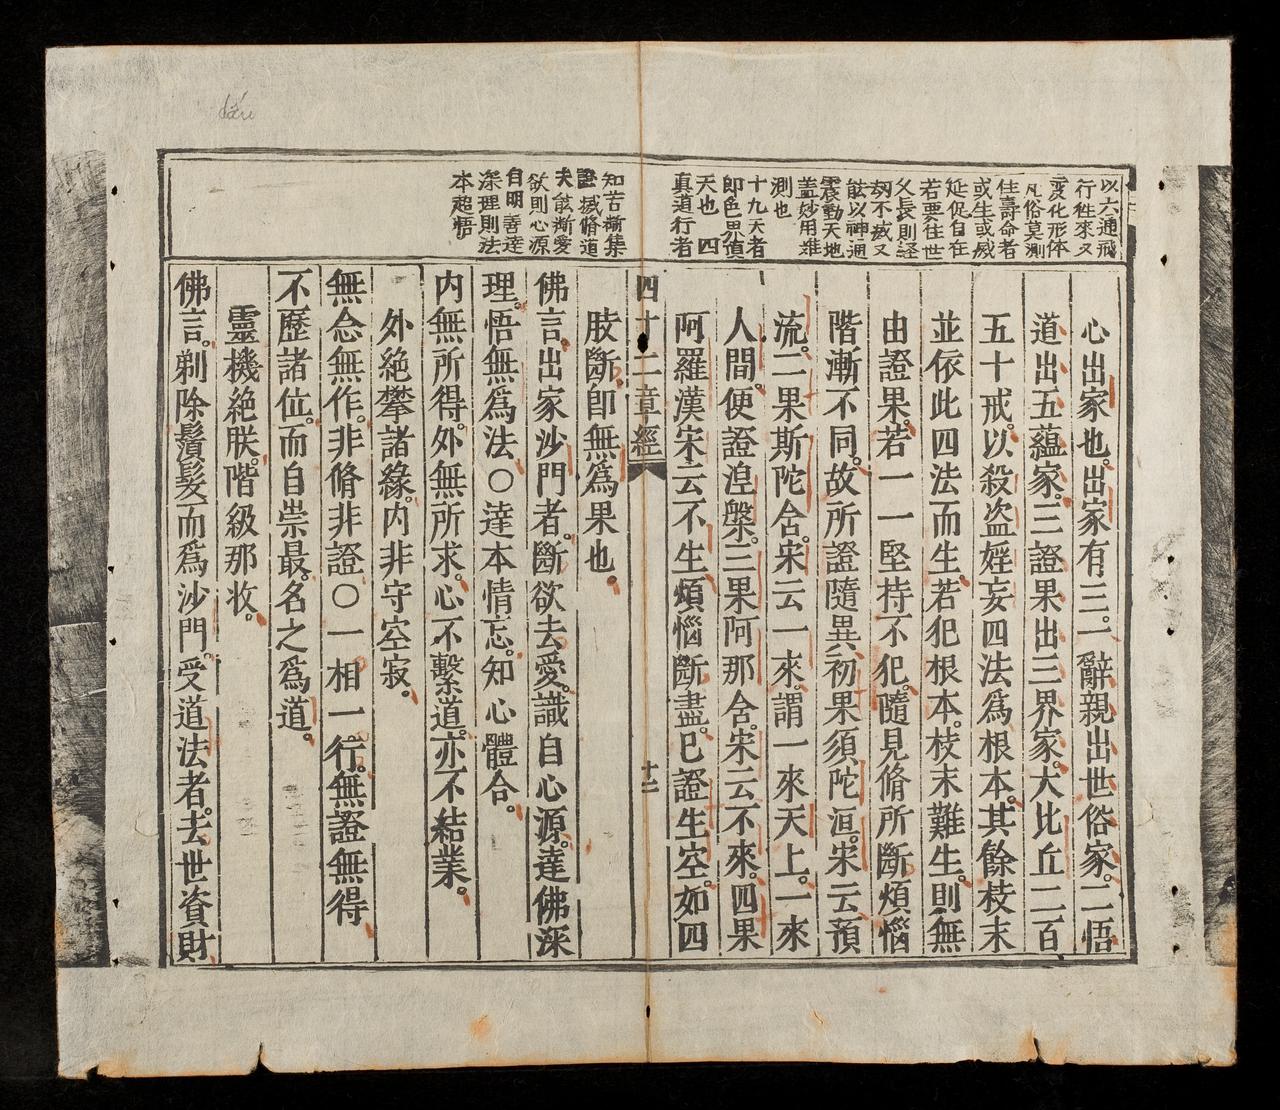 dấu
以六通飛
行徃來又
變化形体
凡俗莫測
住壽命者
或生或威
延促自在
若要住世
父長則経
劫不㓕又
能以神通
震動天地
盖妙用难
測也
十九天者
即色界傎
天也 四
真道行者
知苦㫁集
證㓕脩道
夫能㫁愛
欲則心源
自明善逹
深理則法
本超悟
心出家也。出家有三。一辭親出世俗家。二悟
道出五蘊家。三證果出三界家。大比丘二百
五十戒。以殺盗婬妄四法爲根本。其餘枝末
並依此四法而生。若犯根本。枝末難生。則無
由證果。若一一堅持不犯。隨見脩所斷煩惱
階漸不同。故所證隨異。初果須陀洹。宋云預
流。二果斯陀含。宋云一來。謂一來天上。一來
人間。便證涅槃。三果阿那含。宋云不來。四果
阿羅漢宋云不生。煩惱斷盡。已證生空。如四
四十二章經
十二
肢斷。即無爲果也。
佛言。出家沙門者。斷欲去愛。識自心源。達佛深
理。悟無爲法○達本情忘。知心體合。
内無所得。外無所求。心不繫道。亦不結業。
外絶攀諸緣。内非守空寂。
無念無作。非脩非證○一相一行。無證無得
不歷諸位。而自崇最。名之爲道。
靈機絶朕。階級那收。
佛言。剃除鬚髮。而爲沙門。受道法者。去世資財